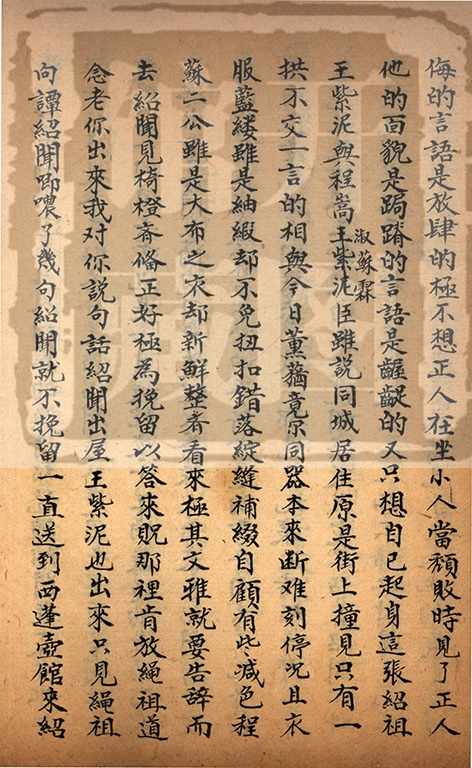 侮的言語是放肆的極不想正人在坐小人當頹敗時見了正人
他的面貌是跼蹐的言語是齷齪的又只想自己起身這張紹祖
淑蘇霖
王紫泥與程嵩王紫泥臣雖說同城居住原是街上撞見只有一
拱不交一言的相與今日薰蕕竟尔同器本來断难刻停况且衣
服藍縷雖是紬緞却不免扭扣錯落綻縫補綴自顧有些減色程
蘇二公雖是大布之衣却新鮮整齊看來極其文雅就要告辞而
去紹聞見椅橙齊俻正好極為挽留以答來貺那裡肯放繩祖道
念老你出來我对你説句話紹聞出屋王紫泥也出來只見繩祖
向譚紹聞唧噥了幾句紹聞就不挽留一直送到西蓬壺館來紹